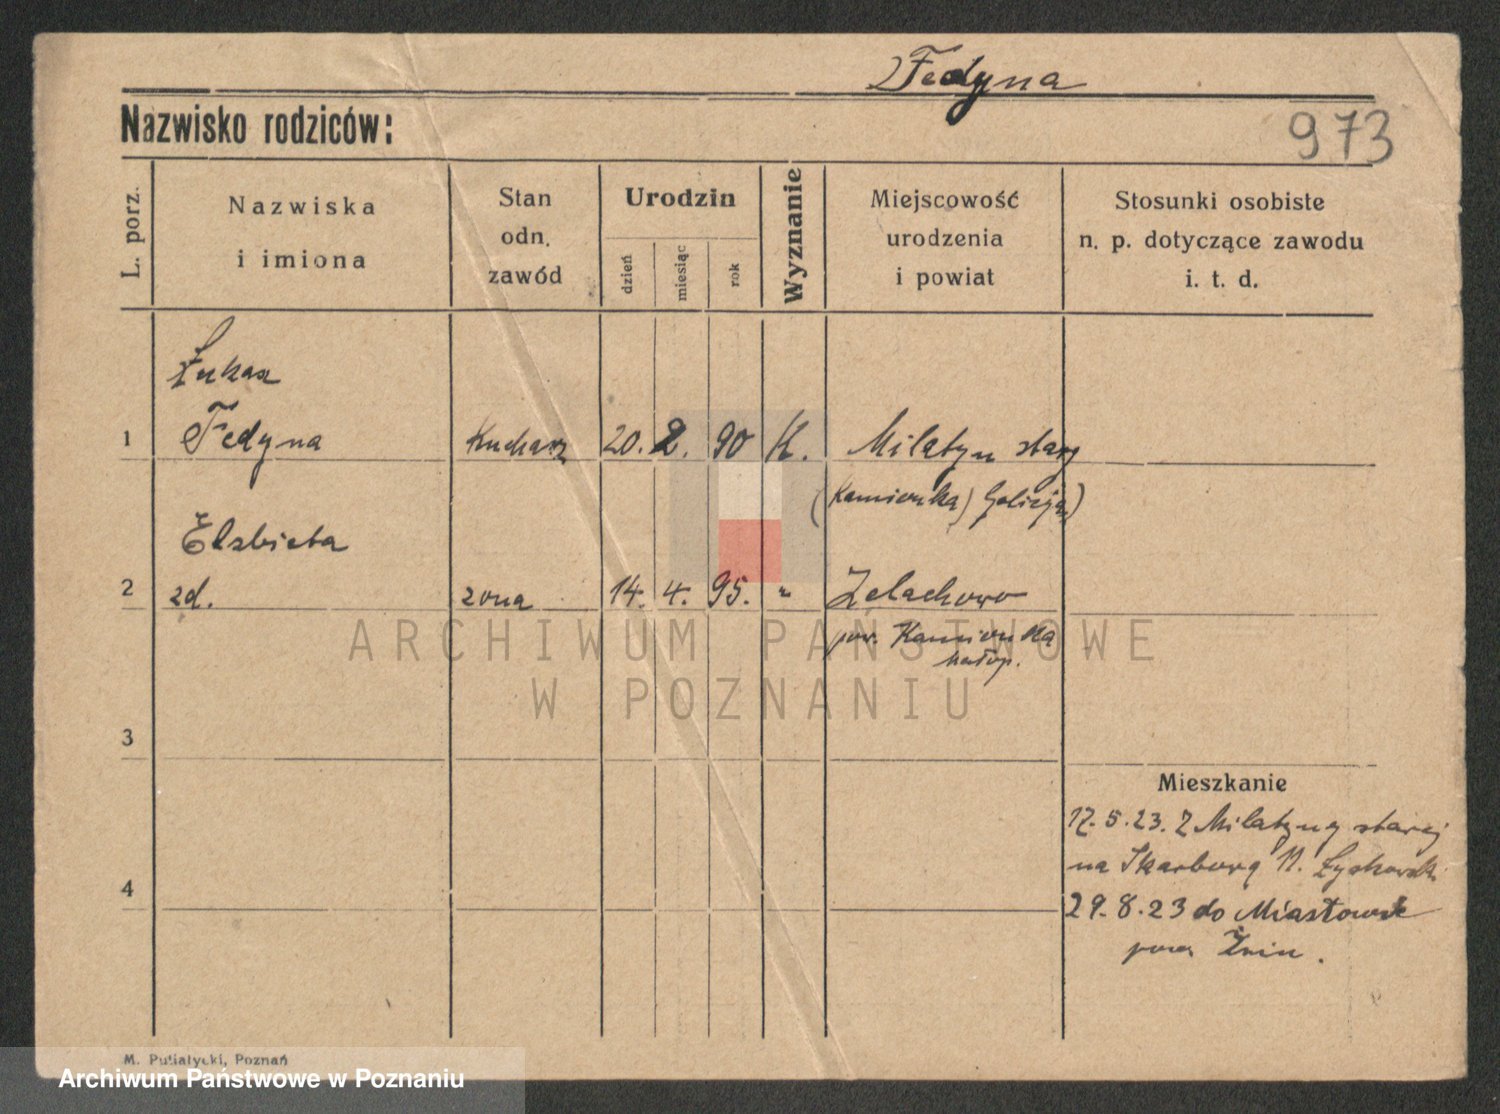 Fedyna
Nazwisko rodziców:
973
L. porz.
Nazwiska
i imiona
Stan
odn.
zawód
Urodzin
dzień
miesiąc
rok
Wyznanie
Miejscowość
urodzenia
i powiat
Stosunki osobiste
n. p. dotyczące zawodu
i. t. d.
Łukasz
1 Fedyna Kucharz 20. 2. 90 K. Milatyn stary
(Kamionka) Galicja)
Elzbieta
2 zd. zona 14. 4. 95. " Zelachowo
pow. Kamionka
małop.
ARCHIWUM PAŃSTWOWE
W POZNANIU
3
Mieszkanie
17.5.23. Z Milatyny starej
na Skarbową 11. Łyskowski
4
29.8.23 do Miastowic
pow Żnin.
M. Putiatycki, Poznań
Archiwum Państwowe w Poznaniu